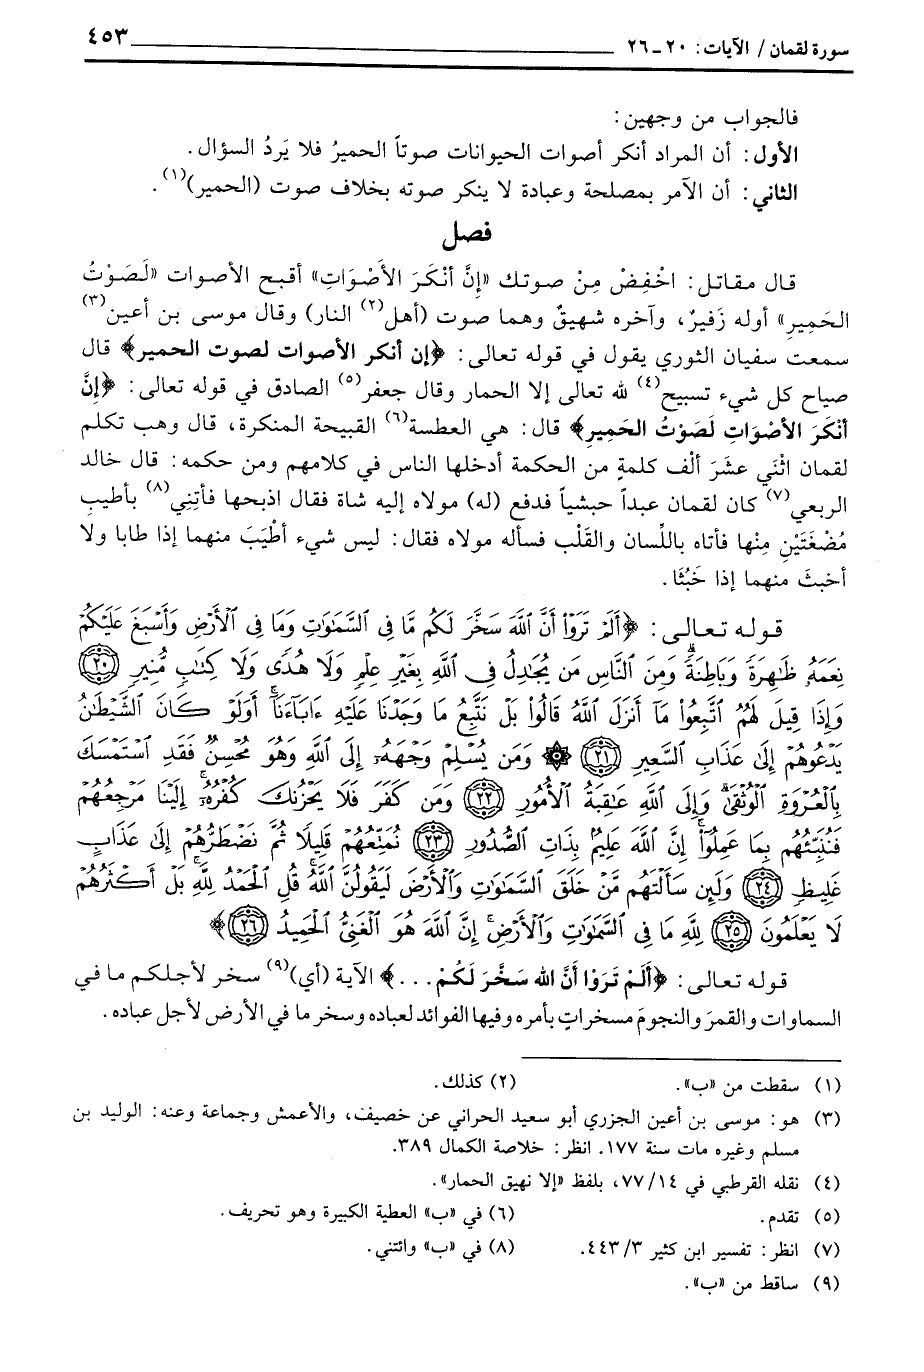 سورة لقمان / الآيات: ٢٠ ـ ٢٦ ٤٥٣
فالجواب من وجهين:
الأول: أن المراد أنكر أصوات الحيوانات صوتاً الحميرُ فلا يَردُ السؤال.
الثاني: أن الآمر بمصلحة وعبادة لا ينكر صوته بخلاف صوت (الحمير)(١).
فصل
قال مقاتل: اخْفِضْ مِنْ صوتك «إِنَّ أَنْكَرَ الأَصْوَاتِ» أقبح الأصوات «لَصَوْتُ
الحَمِيرِ» أوله زَفيرٌ، وآخره شهيقٌ وهما صوت (أهل(٢) النار) وقال موسى بن أعين(٣)
سمعت سفيان الثوري يقول في قوله تعالى: ﴿إن أنكر الأصوات لصوت الحمير﴾ قال
صياح كل شيء تسبيح(٤) لله تعالى إلا الحمار وقال جعفر(٥) الصادق في قوله تعالى: ﴿إِنَّ
أَنْكَرَ الأَصْوَاتِ لَصَوْتُ الحَمِيرِ﴾ قال: هي العطسة(٦) القبيحة المنكرة، قال وهب تكلم
لقمان اثْنَي عشَرَ ألْف كلمةٍ من الحكمة أدخلها الناس في كلامهم ومن حكمه: قال خالد
الربعي(٧) كان لقمان عبداً حبشياً فدفع (له) مولاه إليه شاة فقال اذبحها فأتِني(٨) بأطيبِ
مُضْغَتَيْنِ مِنْها فأتاه باللِّسان والقَلْب فسأله مولاه فقال: ليس شيء أطْيَبَ منهما إذا طابا ولا
أخبثَ منهما إذا خَبُثَا.
قوله تعالى: ﴿أَلَمْ تَرَوْا۟ أَنَّ ٱللَّهَ سَخَّرَ لَكُم مَّا فِى ٱلسَّمَٰوَٰتِ وَمَا فِى ٱلْأَرْضِ وَأَسْبَغَ عَلَيْكُمْ
نِعَمَهُۥ ظَٰهِرَةً وَبَاطِنَةً ۗ وَمِنَ ٱلنَّاسِ مَن يُجَٰدِلُ فِى ٱللَّهِ بِغَيْرِ عِلْمٍ وَلَا هُدًى وَلَا كِتَٰبٍ مُّنِيرٍ ٢٠
وَإِذَا قِيلَ لَهُمُ ٱتَّبِعُوا۟ مَآ أَنزَلَ ٱللَّهُ قَالُوا۟ بَلْ نَتَّبِعُ مَا وَجَدْنَا عَلَيْهِ ءَابَآءَنَآ ۚ أَوَلَوْ كَانَ ٱلشَّيْطَٰنُ
يَدْعُوهُمْ إِلَىٰ عَذَابِ ٱلسَّعِيرِ ٢١ ۞ وَمَن يُسْلِمْ وَجْهَهُۥٓ إِلَى ٱللَّهِ وَهُوَ مُحْسِنٌ فَقَدِ ٱسْتَمْسَكَ
بِٱلْعُرْوَةِ ٱلْوُثْقَىٰ ۗ وَإِلَى ٱللَّهِ عَٰقِبَةُ ٱلْأُمُورِ ٢٢ وَمَن كَفَرَ فَلَا يَحْزُنكَ كُفْرُهُۥٓ ۚ إِلَيْنَا مَرْجِعُهُمْ
فَنُنَبِّئُهُم بِمَا عَمِلُوٓا۟ ۚ إِنَّ ٱللَّهَ عَلِيمٌۢ بِذَاتِ ٱلصُّدُورِ ٢٣ نُمَتِّعُهُمْ قَلِيلًا ثُمَّ نَضْطَرُّهُمْ إِلَىٰ عَذَابٍ
غَلِيظٍ ٢٤ وَلَئِن سَأَلْتَهُم مَّنْ خَلَقَ ٱلسَّمَٰوَٰتِ وَٱلْأَرْضَ لَيَقُولُنَّ ٱللَّهُ ۚ قُلِ ٱلْحَمْدُ لِلَّهِ ۚ بَلْ أَكْثَرُهُمْ
لَا يَعْلَمُونَ ٢٥ لِلَّهِ مَا فِى ٱلسَّمَٰوَٰتِ وَٱلْأَرْضِ ۚ إِنَّ ٱللَّهَ هُوَ ٱلْغَنِىُّ ٱلْحَمِيدُ ٢٦﴾
قوله تعالى: ﴿أَلَمْ تَرَوْا أَنَّ الله سَخَّرَ لَكُمْ...﴾ الآية (أي)(٩) سخر لأجلكم ما في
السماوات والقمرَ والنجومَ مسخراتٍ بأمره وفيها الفوائد لعباده وسخر ما في الأرض لأجل عباده.
(١) سقطت من «ب». (٢) كذلك.
(٣) هو: موسى بن أعين الجزري أبو سعيد الحراني عن خصيف، والأعمش وجماعة وعنه: الوليد بن
مسلم وغيره مات سنة ١٧٧. انظر: خلاصة الكمال ٣٨٩.
(٤) نقله القرطبي في ٧٧/١٤، بلفظ «إلا نهيق الحمار».
(٥) تقدم. (٦) في «ب» العطية الكبيرة وهو تحريف.
(٧) انظر: تفسير ابن كثير ٤٤٣/٣. (٨) في «ب» وائتني.
(٩) ساقط من «ب».